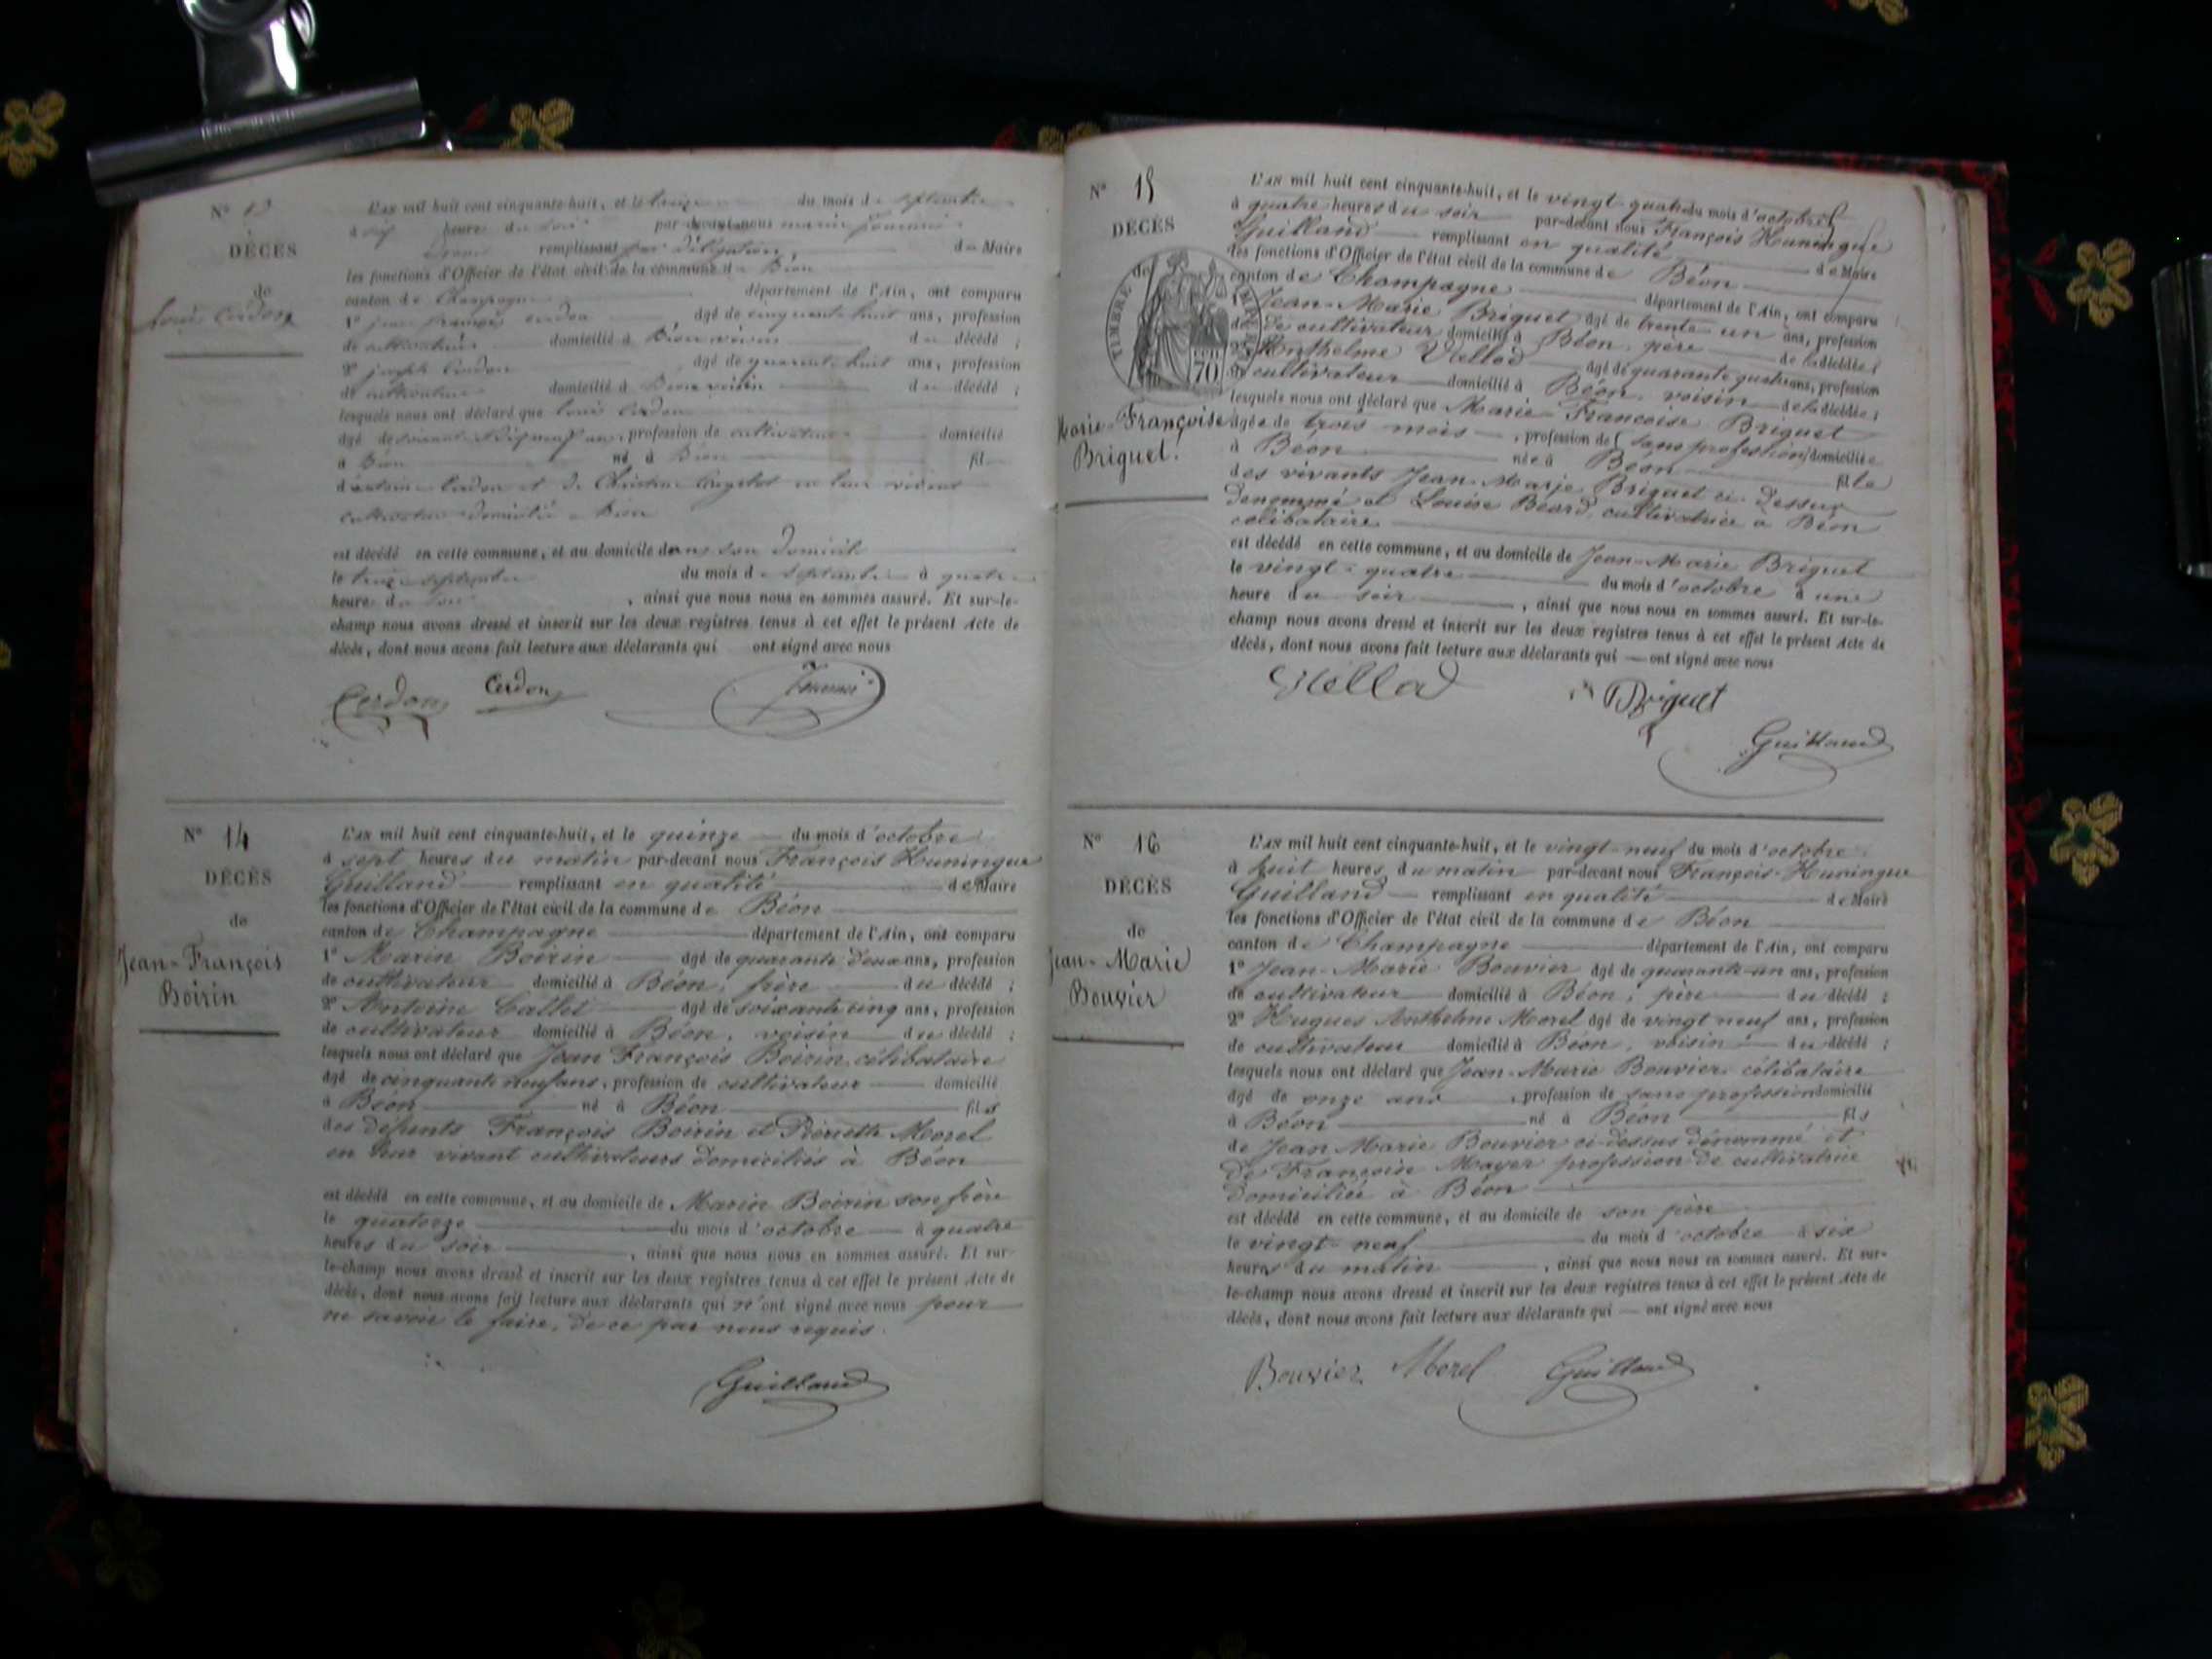 N° 13
DÉCÈS
de
Louis Cerdon
L'an mil huit cent cinquante-huit, et le treize du mois de septembre
à six heures du soir par-devant nous marin
remplissant par délégation du Maire
les fonctions d'Officier de l'état civil de la commune de Béon
canton de Champagne département de l'Ain, ont comparu
1° jean françois cerdon âgé de cinquante huit ans, profession
de cultivateur domicilié à Béon voisin du décédé ;
2° joseph Cerdon âgé de quarante huit ans, profession
de cultivateur domicilié à Béon voisin du décédé ;
lesquels nous ont déclaré que louis Cerdon
âgé de soixante ans, profession de cultivateur domicilié
à Béon né à Béon fil
d'antoine Cerdon et de Christine en leur vivant
cultivateur domicilié a Béon
est décédé en cette commune, et au domicile dans son domicile
le treize septembre du mois de septembre à quatre
heure du soir , ainsi que nous nous en sommes assuré. Et sur-le-
champ nous avons dressé et inscrit sur les deux registres tenus à cet effet le présent Acte de
décès, dont nous avons fait lecture aux déclarants qui ont signé avec nous
Cerdon Cerdon
N° 14
DÉCÈS
de
Jean-François
Boirin
L'an mil huit cent cinquante-huit, et le quinze du mois d'octobre
à sept heures du matin par-devant nous François Huningue
Guilland remplissant en qualité de Maire
les fonctions d'Officier de l'état civil de la commune de Béon
canton de Champagne département de l'Ain, ont comparu
1° Marin Boirin âgé de quarante deux ans, profession
de cultivateur domicilié à Béon, frère du décédé ;
2° Antoine Callet âgé de soixante cinq ans, profession
de cultivateur domicilié à Béon, voisin du décédé ;
lesquels nous ont déclaré que Jean François Boirin célibataire
âgé de cinquante neuf ans, profession de cultivateur domicilié
à Béon né à Béon fils
des défunts François Boirin et Pierrette Morel
en leur vivant cultivateurs domiciliés à Béon
est décédé en cette commune, et au domicile de Marin Boirin son frère
le quatorze du mois d'octobre à quatre
heures du soir , ainsi que nous nous en sommes assuré. Et sur-
le-champ nous avons dressé et inscrit sur les deux registres tenus à cet effet le présent Acte de
décès, dont nous avons fait lecture aux déclarants qui n'ont signé avec nous pour
ne savoir le faire, de ce par nous requis.
Guilland
N° 15
DÉCÈS
de
TIMBRE IMPÉRIAL
70
Marie-Françoise
Briguet.
L'an mil huit cent cinquante-huit, et le vingt-quatre du mois d'octobre
à quatre heures du soir par-devant nous François Huningue
Guilland remplissant en qualité de Maire
les fonctions d'Officier de l'état civil de la commune de Béon
canton de Champagne département de l'Ain, ont comparu
1° Jean-Marie Briguet âgé de trente-un ans, profession
de cultivateur domicilié à Béon, père de la décédée ;
2° Anthelme Vellod âgé de quarante quatre ans, profession
de cultivateur domicilié à Béon, voisin de la décédée ;
lesquels nous ont déclaré que Marie Francoise Briguet
âgée de trois mois , profession de (sans profession) domiciliée
à Béon née à Béon fille
des vivants Jean-Marie Briguet ci-dessus
dénommé et Louise Béard, cultivatrice à Béon
célibataire
est décédé en cette commune, et au domicile de Jean-Marie Briguet
le vingt-quatre du mois d'octobre à une
heure du soir , ainsi que nous nous en sommes assuré. Et sur-le-
champ nous avons dressé et inscrit sur les deux registres tenus à cet effet le présent Acte de
décès, dont nous avons fait lecture aux déclarants qui — ont signé avec nous
Vellod Briguet
Guilland
N° 16
DÉCÈS
de
Jean-Marie
Bouvier
L'an mil huit cent cinquante-huit, et le vingt-neuf du mois d'octobre
à huit heures du matin par-devant nous François Huningue
Guilland remplissant en qualité de Maire
les fonctions d'Officier de l'état civil de la commune de Béon
canton de Champagne département de l'Ain, ont comparu
1° Jean-Marie Bouvier âgé de quarante-un ans, profession
de cultivateur domicilié à Béon, père du décédé ;
2° Hugues Anthelme Morel âgé de vingt neuf ans, profession
de cultivateur domicilié à Béon, voisin du décédé ;
lesquels nous ont déclaré que Jean-Marie Bouvier célibataire
âgé de onze ans , profession de sans profession domicilié
à Béon né à Béon fils
de Jean Marie Bouvier ci-dessus dénommé et
de Françoise Mayer profession de cultivatrice
domiciliée à Béon
est décédé en cette commune, et au domicile de son père
le vingt-neuf du mois d'octobre à six
heures du matin , ainsi que nous nous en sommes assuré. Et sur-
le-champ nous avons dressé et inscrit sur les deux registres tenus à cet effet le présent Acte de
décès, dont nous avons fait lecture aux déclarants qui — ont signé avec nous
Bouvier Morel Guilland